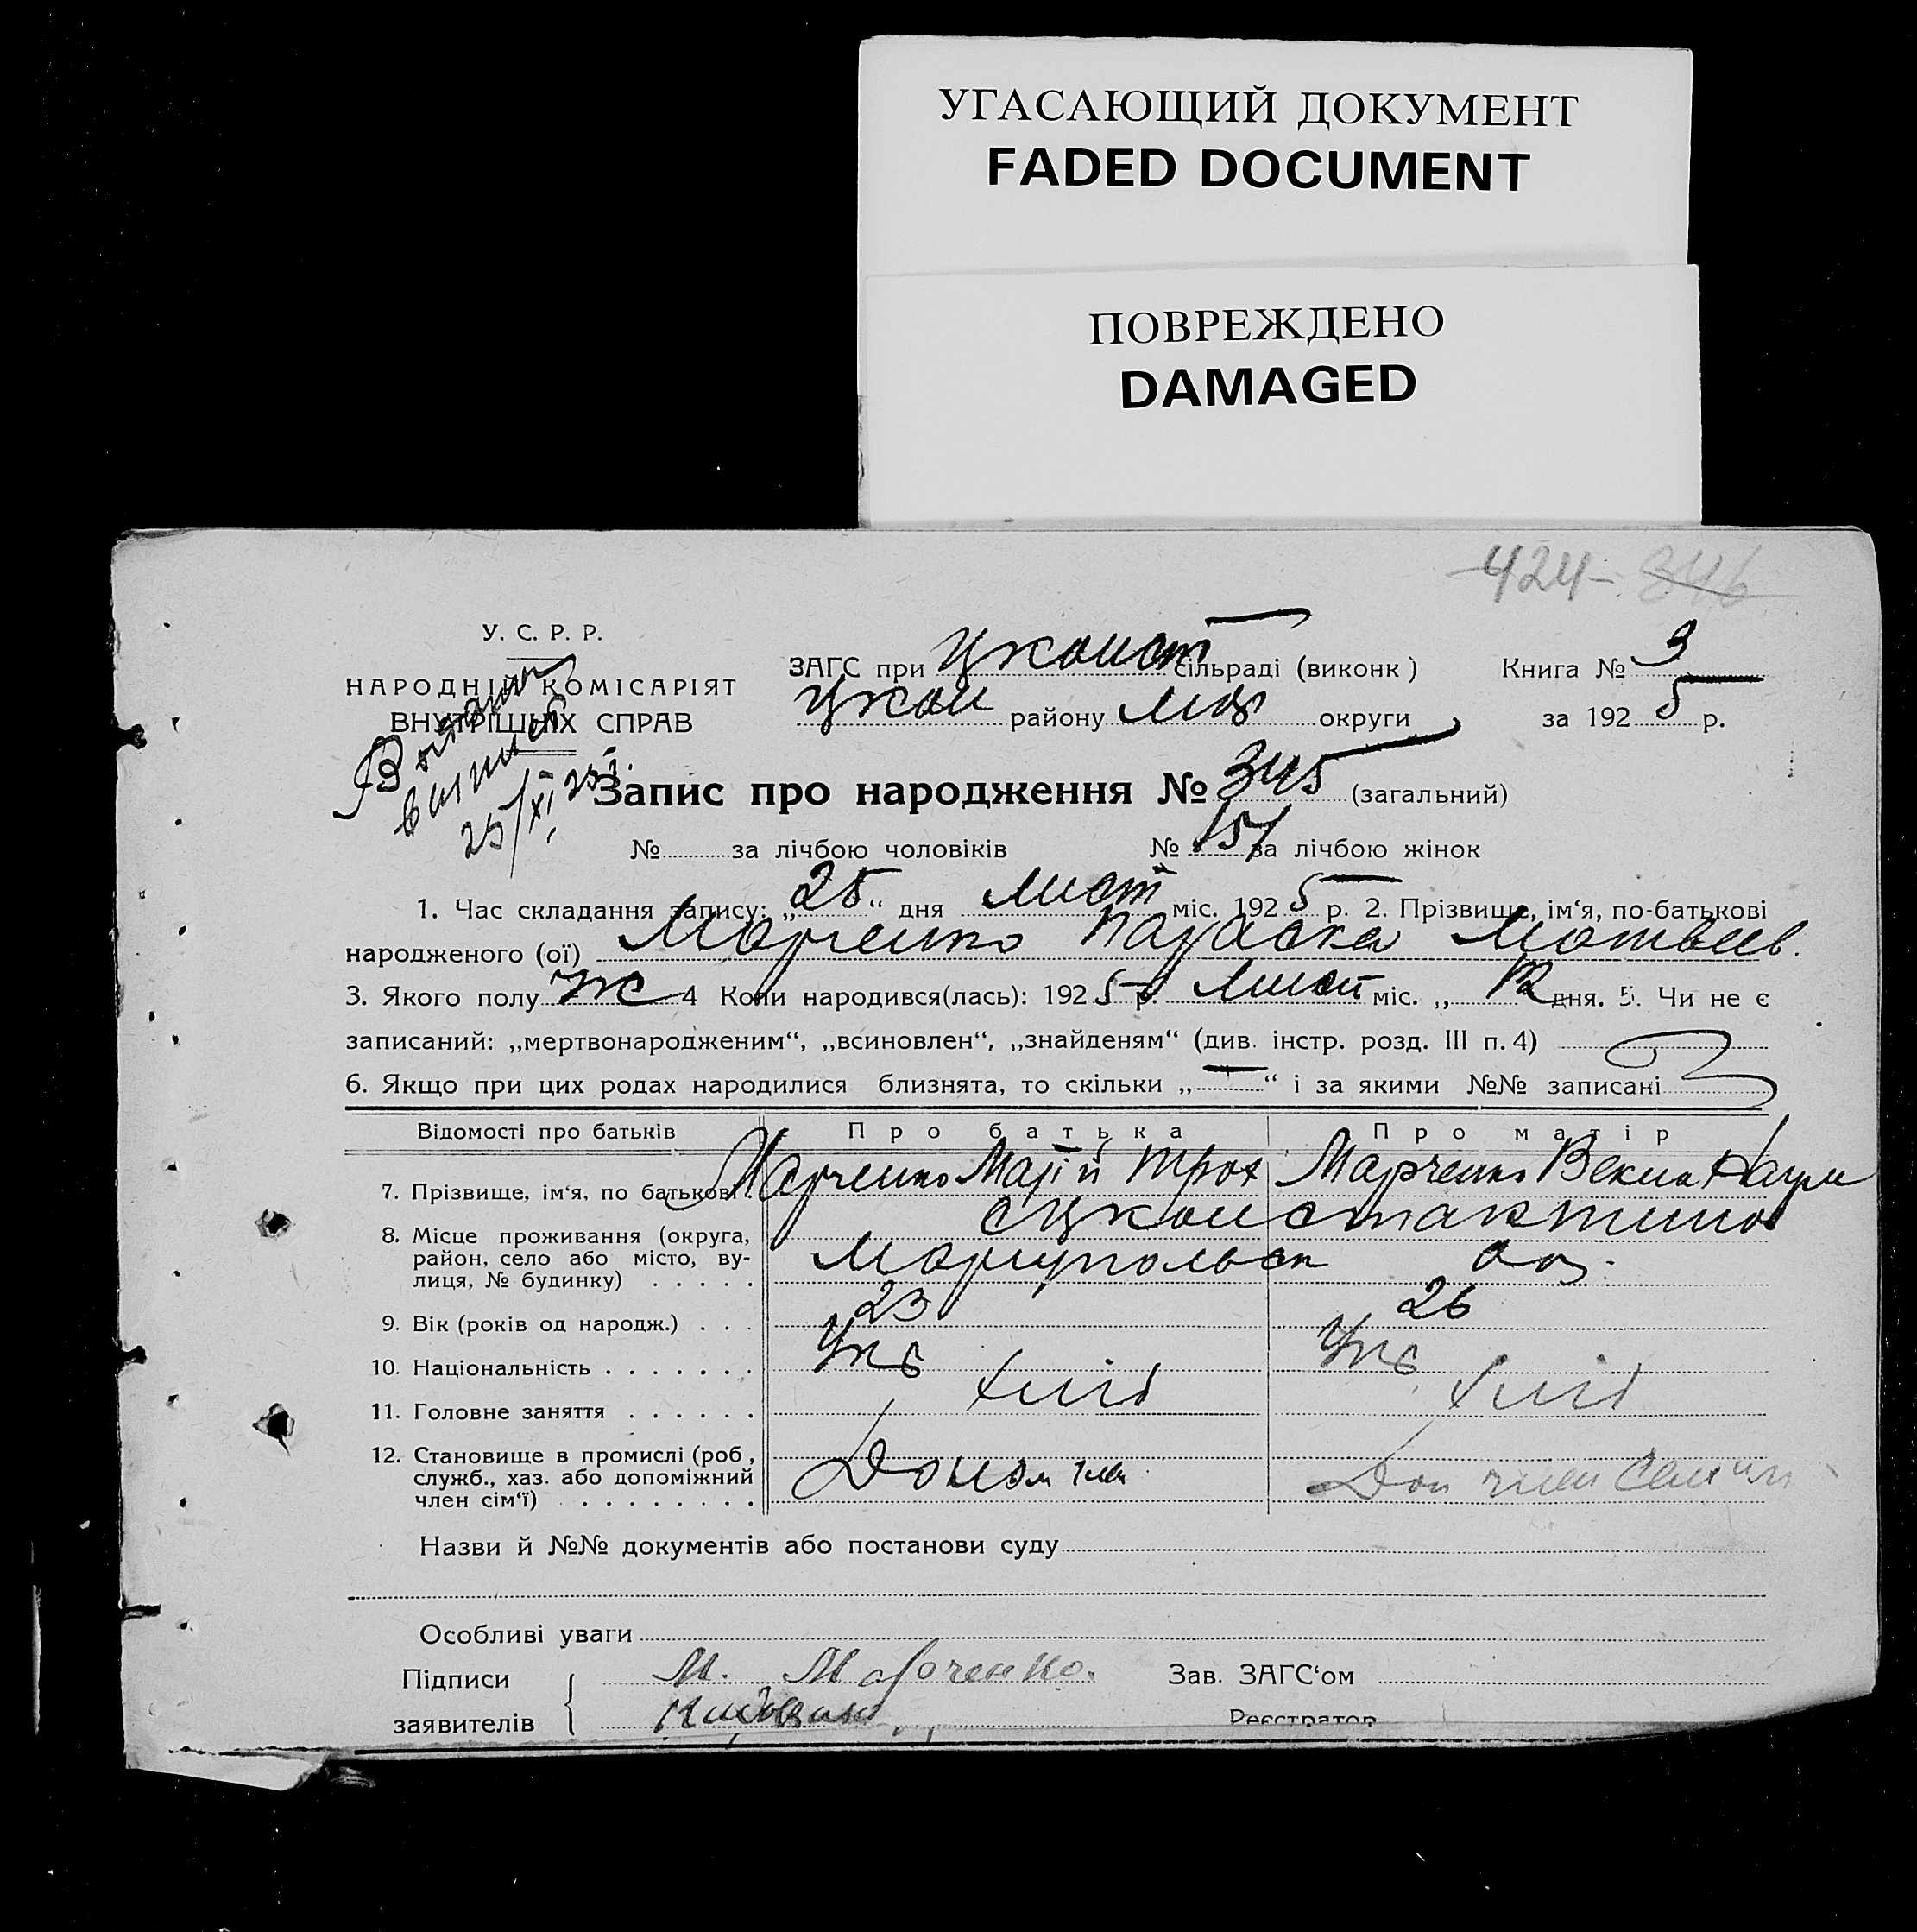 УГАСАЮЩИЙ ДОКУМЕНТ
FADED DOCUMENT
ПОВРЕЖДЕНО
DAMAGED
424 346
У. С. Р. Р.
НАРОДНІЙ КОМІСАРІЯТ
ВНУТРІШНІХ СПРАВ
25/XI 25
ЗАГС при Цконст сільраді (виконк) Книга № 3
Цкон району Мар округи за 1925 р.
Запис про народження № 345 (загальний)
№ за лічбою чоловіків № 151 за лічбою жінок
1. Час складання запису: „25“ дня лист міс. 1925 р. 2. Прізвище, ім‘я, по-батькові
народженого (ої) Марченко Параска Матвеев.
3. Якого полу ж 4 Коли народився(лась): 1925 р. лист міс. „12 дня. 5. Чи не є
записаний: „мертвонародженим“, „всиновлен“, „знайденям“ (див. інстр. розд. III п. 4)
6. Якщо при цих родах народилися близнята, то скільки „—“ і за якими №№ записані
Відомості про батьків Про батька Про матір
7. Прізвище, ім‘я, по батькові Марченко Трох Марченко Наум
8. Місце проживання (округа,
район, село або місто, ву-
лиця, № будинку)
Маріупольск
9. Вік (років од народж.) 23 26
10. Національність Укр Укр
11. Головне заняття хліб хліб
12. Становище в промислі (роб,
служб., хаз. або допоміжний
член сім‘ї) Доп член семьи
Назви й №№ документів або постанови суду
Особливі уваги
Підписи М. Марченко. Зав. ЗАГС‘ом
заявителів Реєстратор